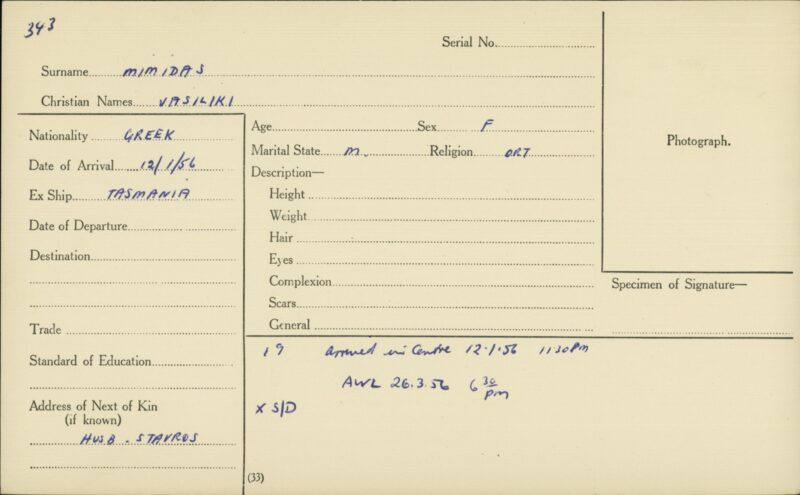 343
Serial No.
Surname MIMIDAS
Christian Names VASILIKI
Nationality GREEK
Date of Arrival 12/1/56
Ex Ship TASMANIA
Date of Departure
Destination
Trade
Standard of Education
Address of Next of Kin
(if known)
HUSB. STAVROS
Age Sex F
Marital State M. Religion ORT
Description—
Height
Weight
Hair
Eyes
Complexion
Scars
General
Photograph.
Specimen of Signature—
19 arrived in Centre 12.1.56 1130pm
AWL 26.3.56 6 30 pm
X S/D
(33)